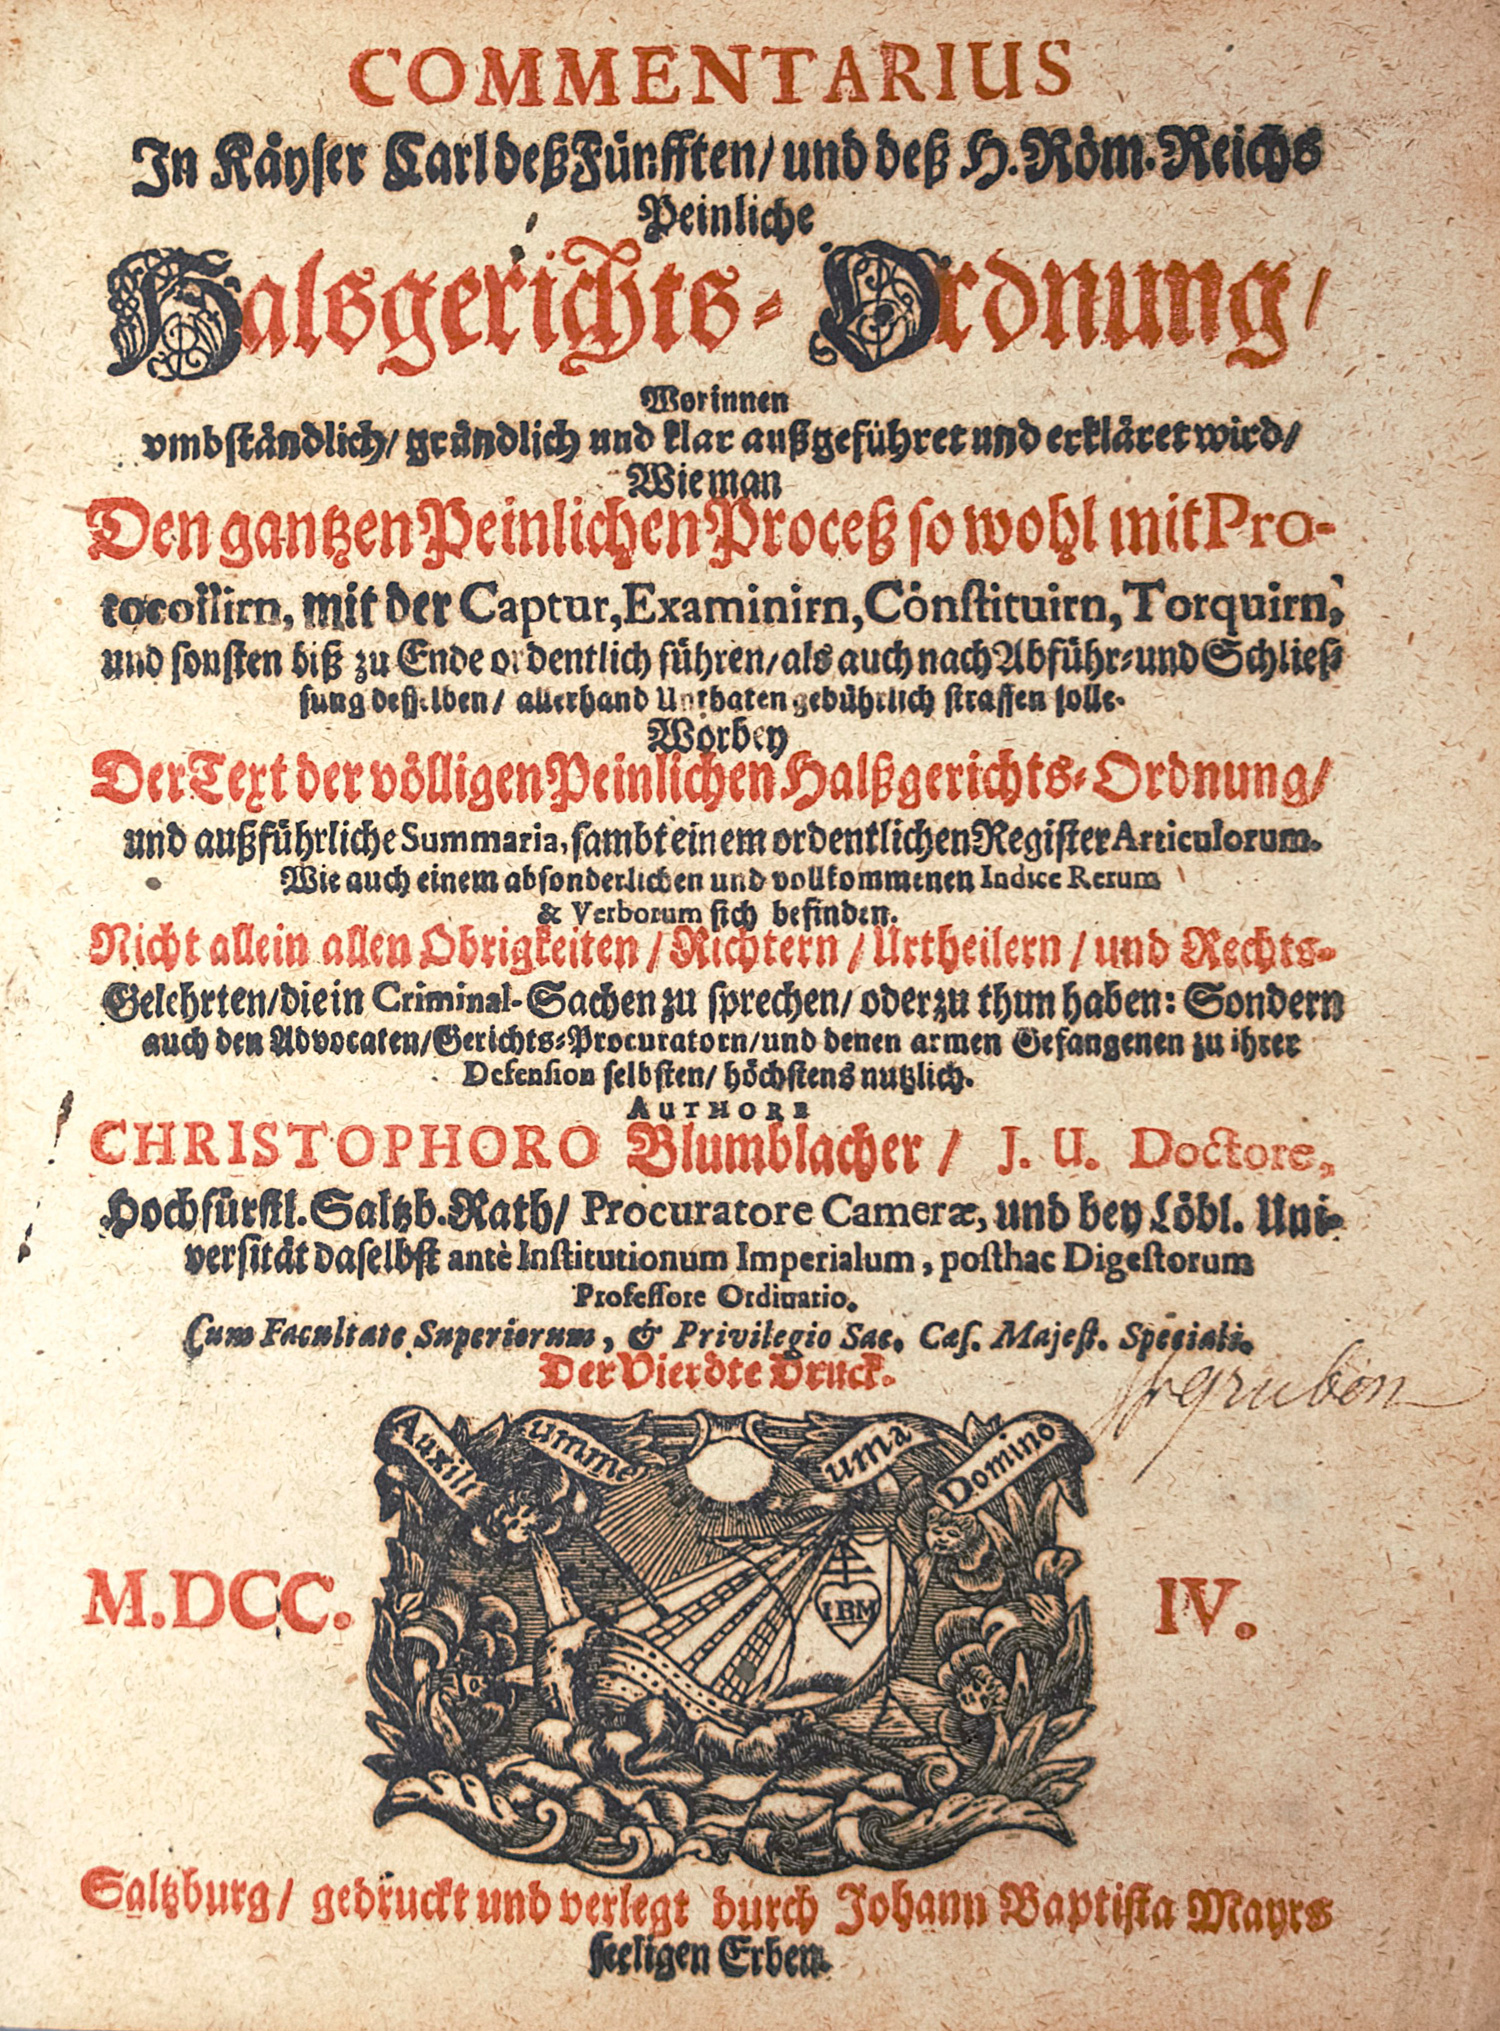 COMMENTARIUS
In Käyser Carl deß Fünfften/ und deß H. Röm. Reichs
Peinliche
Halsgerichts-Ordnung/
Worinnen
vmbständlich/ gründlich und klar außgeführet und erkläret wird/
Wie man
Den gantzen Peinlichen Proceß so wohl mit Pro-
tocollirn, mit der Captur, Examinirn, Constituirn, Torquirn,
und sonsten biß zu Ende ordentlich führen/ als auch nach Abführ- und Schlies-
sung desselben/ allerhand Unthaten gebührlich straffen solle.
Worbey
Der Text der völligen Peinlichen Halßgerichts-Ordnung/
und außführliche Summaria, sambt einem ordentlichen Register Articulorum.
Wie auch einem absonderlichen und vollkommenen Indice Rerum
& Verborum sich befinden.
Nicht allein allen Obrigkeiten/ Richtern/ Urtheilern/ und Rechts-
Gelehrten/ die in Criminal-Sachen zu sprechen/ oder zu thun haben: Sondern
auch den Advocaten/ Gerichts-Procuratorn/ und denen armen Gefangenen zu ihrer
Defension selbsten/ höchstens nutzlich.
AUTHORE
CHRISTOPHORO Blumblacher/ J. U. Doctore,
Hochfürstl. Saltzb. Rath/ Procuratore Cameræ, und bey Löbl. Uni-
versität daselbst antè Institutionum Imperialum, posthac Digestorum
Professore Ordinario.
Cum Facultate Superiorum, & Privilegio Sac. Cæs. Majest. Speciali.
Der Vierdte Druck.
Auxili umme uma Domino
IBM
M.DCC. IV.
Saltzburg/ gedruckt und verlegt durch Johann Baptista Mayrs
seeligen Erben.